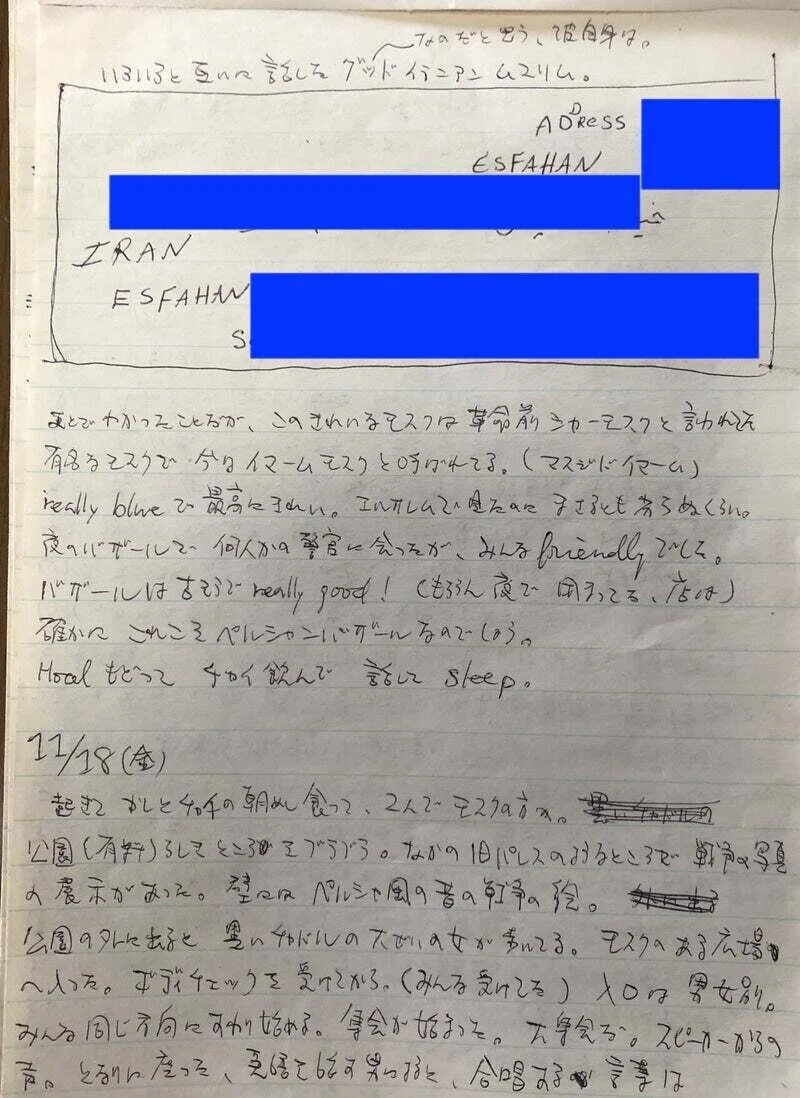 なのだと思う、彼自身は。
いろいろと互いに話した グッドイラニアンムスリム。
ADDRESS
ESFAHAN
IRAN
ESFAHAN
S
あとでわかったことだが、このきれいなモスクは革命前シャーモスクと言われてた
有名なモスクで 今は イマームモスクと呼ばれてる。(マスジドイマーム)
really blueで最高にきれい。エルサレムで見たのに まさるとも劣らぬくらい。
夜のバザールで 何人かの警官に会ったが、みんなfriendlyでした。
バザールは古そうで really good! (もちろん夜で 閉まってる、店は)
確かに これこそ ペルシャンバザールなのでしょう。
Hotelもどって チャイ飲んで 話して sleep。
11/18(金)
起きて かしとチャイの朝めし食って、2人で モスクの方へ。
公園(有料)らしきところをブラブラ。なかの旧パレスのようなところで 戦争の写真
の展示があった。壁には ペルシャ風の昔の戦争の絵。
公園の外に出ると 黒いチャドルの大ぜいの女が歩いてる。モスクのある広場
へ入った。ボディチェックを受けてから。(みんな受けてた) 入口は男女別。
みんな同じ方向にすわり始める。集会が始まった。大集会だ。スピーカーからの
声。となりに座った、英語を話す男によると、合唱する言葉は